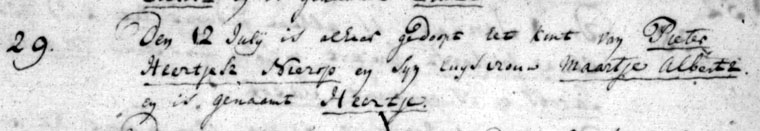 29. Den 12 Julij is alhier gedoopt het kint van Pieter
Heertjesz Nierop en syn huysvrouw Maartje Alberts.
en is genaamt Heertje.